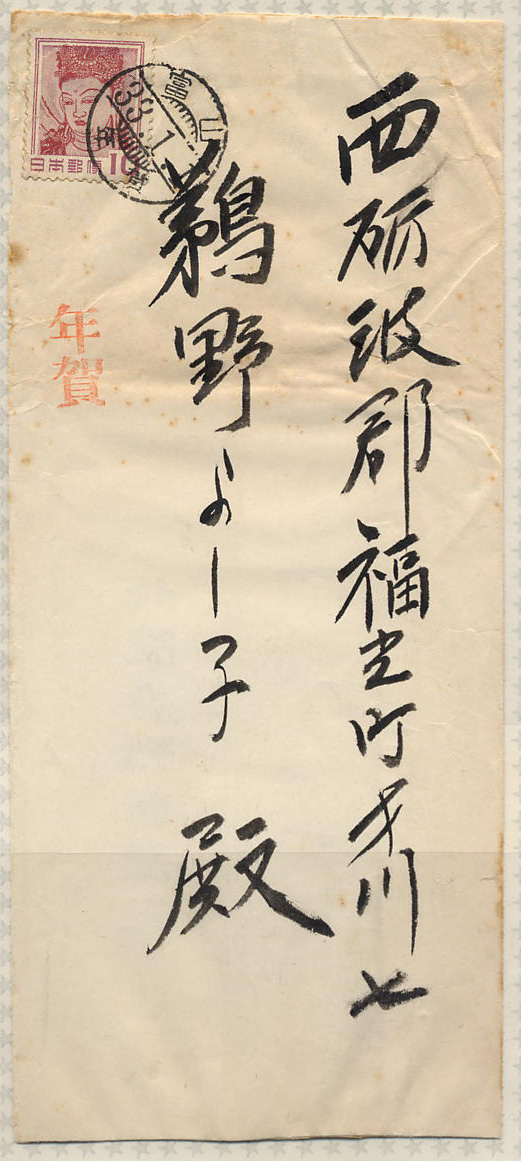 西砺波郡福光町才川七
鵜野よし子 殿
年賀
日本郵便 10
富山
33.1.1